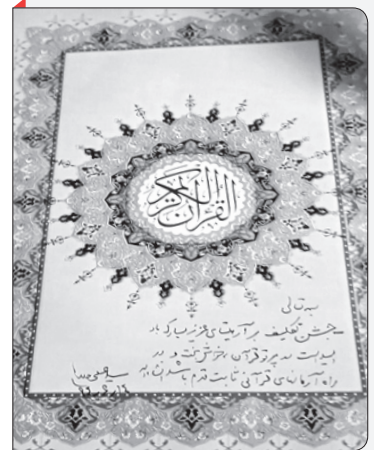 القرآن الكريم
بسمه تعالی
جشن تکلیف بر آرمیتای عزیز مبارک باد
امید است در پرتو قرآن خوش و در
راه آرمان‌های قرآنی ثابت قدم باشد